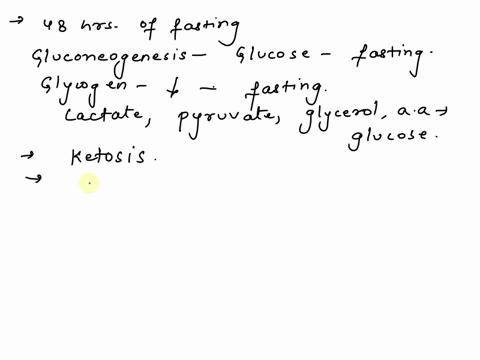 → 48 hrs. of fasting
Gluconeogenesis - Glucose - fasting.
Glycogen - ↓ - fasting.
Lactate, pyruvate, glycerol, a.a →
glucose.
→ Ketosis.
→